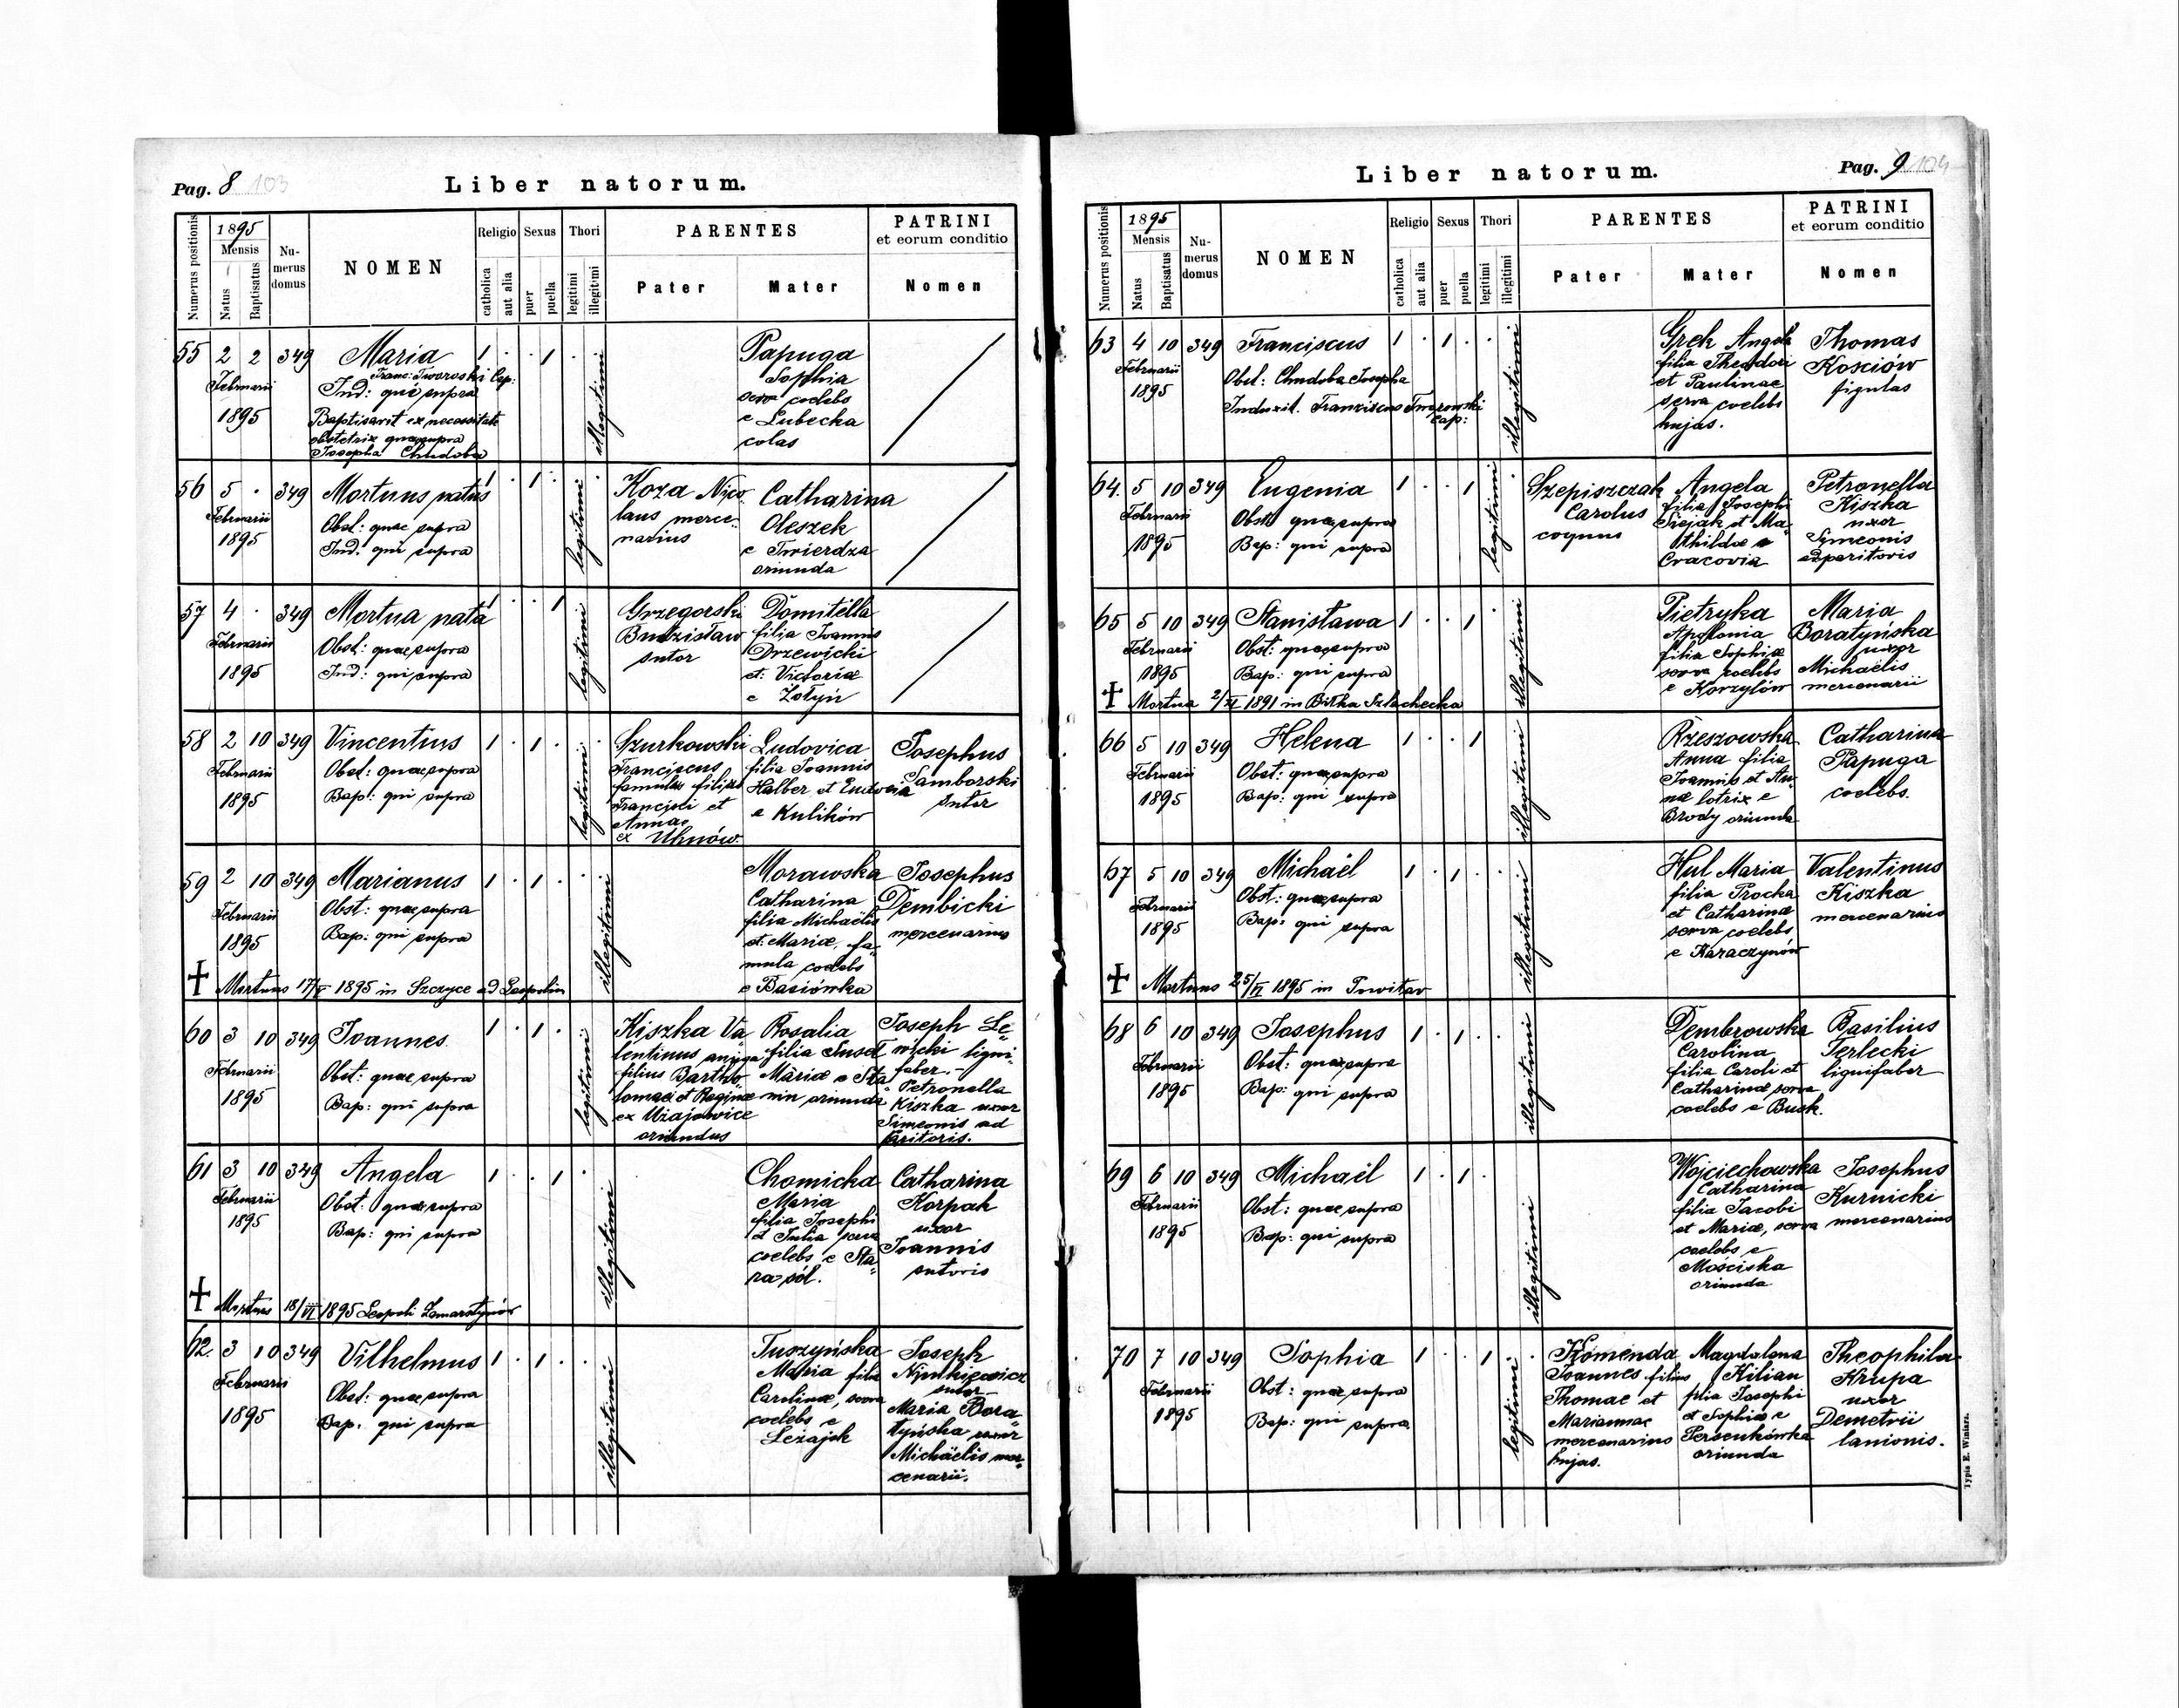 Pag. 8 103
Liber natorum.
Numerus positionis
1895
Mensis
Natus
Baptisatus
Nu-
merus
domus
NOMEN
Religio
catholica
aut alia
Sexus
puer
puella
Thori
legitimi
illegitimi
PARENTES
Pater
Mater
PATRINI
et eorum conditio
Nomen
55 2 2 349 Maria 1 . . 1 .
Februarii
1895
Franc: Tworoski Cop:
Ind: qui supra
Baptisavit ex necessitate
obstetrix quae supra
Josepha Chudoba
illegitimi
Papuga
Sophia
serva coelebs
e Lubecka
colas
56 5 . 349 Mortuus natus 1 . 1 . .
Februarii
1895
Obst: quae supra
Ind. qui supra
legitimi
Koza Nico
laus merce-
narius
Catharina
Oleszek
e Twierdza
oriunda
57 4 . 349 Mortua nata 1 . . 1
Februarii
1895
Obst: quae supra
Ind: qui supra
legitimi
Grzegorski
Budzisław
sutor
Domitella
filia Joannis
Drzewicki
et Victoriæ
e Żołyń
58 2 10 349 Vincentius 1 . 1 . .
Februarii
1895
Obst: quae supra
Bap: qui supra
legitimi
Szurkowski
Franciscus
famulus filius
Francisci et
Annae
ex Uhnów.
Ludovica
filia Joannis
Halber et Eudocia
e Kulików
Josephus
Samborski
sutor
59 2 10 349 Marianus 1 . 1 . .
Februarii
1895
Obst: quae supra
Bap: qui supra
† Mortuus 17/V 1895 in Szczyce ad Leopolim
illegitimi
Morawska
Catharina
filia Michaëlis
et Mariæ, fa-
mula coelebs
e Basiówka
Josephus
Dembicki
mercenarius
60 3 10 349 Joannes. 1 . 1 .
Februarii
1895
Obst: quae supra
Bap: qui supra
legitimi
Kiszka Va
lentinus
filius Bartho
lomaei et Reginæ
ex Użajowice
oriundus
Rosalia
filia
Mariæ e Sta
nin oriunda
Joseph Le-
wicki ligni-
faber.-
Petronella
Kiszka uxor
Simeonis ad
paritoris.
61 3 10 349 Angela 1 . . 1 .
Februarii
1895
Obst: quae supra
Bap: qui supra
† Mortuus 18/VI 1895 Leopoli Zamarstynów
illegitimi
Chomicka
Maria
filia Josephi
et Julia serva
coelebs e Sta-
ra-sól.
Catharina
Korpak
uxor
Joannis
sutoris
62. 3 10 349 Vilhelmus 1 . 1 . .
Februarii
1895
Obst: quae supra
Bap: qui supra
illegitimi
Tuszyńska
Maria filia
Carolinæ, serva
coelebs e
Leżajsk
Joseph
sutor
Maria Bora-
tyńska uxor
Michaëlis mer-
cenarii.
Pag. 9 104
Liber natorum.
Numerus positionis
1895
Mensis
Natus
Baptisatus
Nu-
merus
domus
NOMEN
Religio
catholica
aut alia
Sexus
puer
puella
Thori
legitimi
illegitimi
PARENTES
Pater
Mater
PATRINI
et eorum conditio
Nomen
63 4 10 349 Franciscus 1 . 1 . .
Februarii
1895
Obst: Chudoba Josepha
Induxit. Franziscus Tworowski
Cap:
illegitimi
Grek Angela
filia Theodori
et Paulinae
serva coelebs
hujas.
Thomas
Kosciów
figulus
64. 5 10 349 Eugenia 1 . . 1
Februarii
1895
Obst: quae supra
Bap: qui supra
legitimi
Szepiszczak
Carolus
coquus
Angela
filia Josephi
Siejak et Ma-
thildæ e
Cracovia
Petronella
Kiszka
uxor
Symeonis
adparitoris
65 5 10 349 Stanisława 1 . . 1 .
Februarii
1895
Obst: quae supra
Bap: qui supra
† Mortua 2/XI 1891 in Biłka Szlachecka
illegitimi
Pietryka
Apolonia
filia Sophiæ
serva coelebs
e Korzylów
Maria
Boratyńska
uxor
Michaëlis
mercenarii
66 5 10 349 Helena 1 . . 1
Februarii
1895
Obst: quae supra
Bap: qui supra
illegitimi
Rzeszowska
Anna filia
Joannis et An-
næ lotrix e
Brody oriunda
Catharina
Papuga
coelebs.
67 5 10 349 Michaël 1 . 1 . .
Februarii
1895
Obst: quae supra
Bap: qui supra
† Mortuus 25/VI 1895 in Powitav
illegitimi
Hul Maria
filia Procka
et Catharinæ
serva coelebs
e Karaczynów
Valentinus
Kiszka
mercenarius
68 6 10 349 Josephus 1 . 1 . .
Februarii
1895
Obst: quae supra
Bap: qui supra
illegitimi
Dembrowska
Carolina
filia Caroli et
Catharinæ serva
coelebs e Busk.
Basilius
Terlecki
lignifaber
69 6 10 349 Michaël 1 . 1 .
Februarii
1895
Obst: quae supra
Bap: qui supra
illegitimi
Wojciechowska
Catharina
filia Jacobi
et Mariæ, serva
coelebs e
Mościska
oriunda
Josephus
Kurnicki
mercenarius
70 7 10 349 Sophia 1 . . 1 .
Februarii
1895
Obst: quae supra
Bap: qui supra
legitimi
Komenda
Joannes filius
Thomae et
Mariannae
mercenarius
hujas.
Magdalena
Kilian
filia Josephi
et Sophiæ e
Persenkówka
oriunda
Theophila
Krupa
uxor
Demetrii
lanionis.
Typis E. Winiarz.